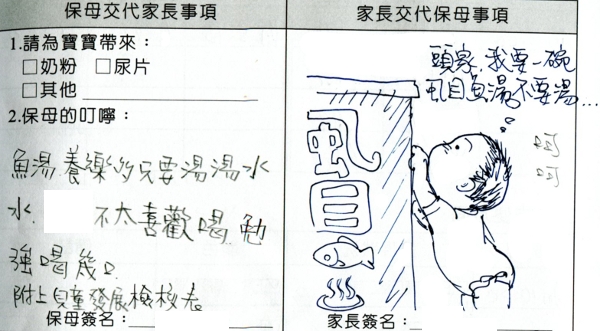 保母交代家長事項
1.請為寶寶帶來：
□奶粉 □尿片
□其他
2.保母的叮嚀：
魚湯、養樂多只要湯湯水
水. 不太喜歡喝.勉
強喝幾口
附上兒童發展檢核表
保母簽名：
家長交代保母事項
頭家,我要一碗
虱目魚湯,不要湯...
呵
呵
虱
目
家長簽名：